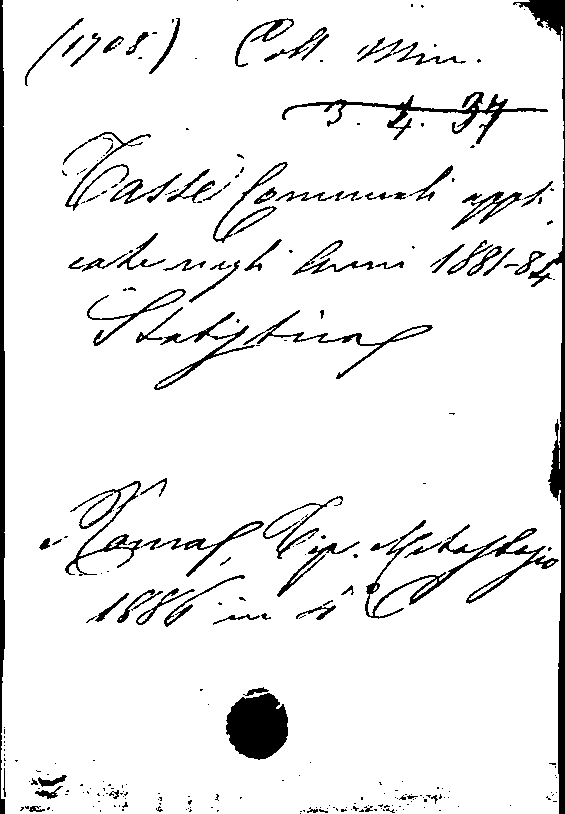 (1708.) Coll. Min.
3. 4. 37
Tasse Comunali appli
cate negli Anni 1881-84
Statistica
Roma, Tip. Metastasio
1886 in 4°